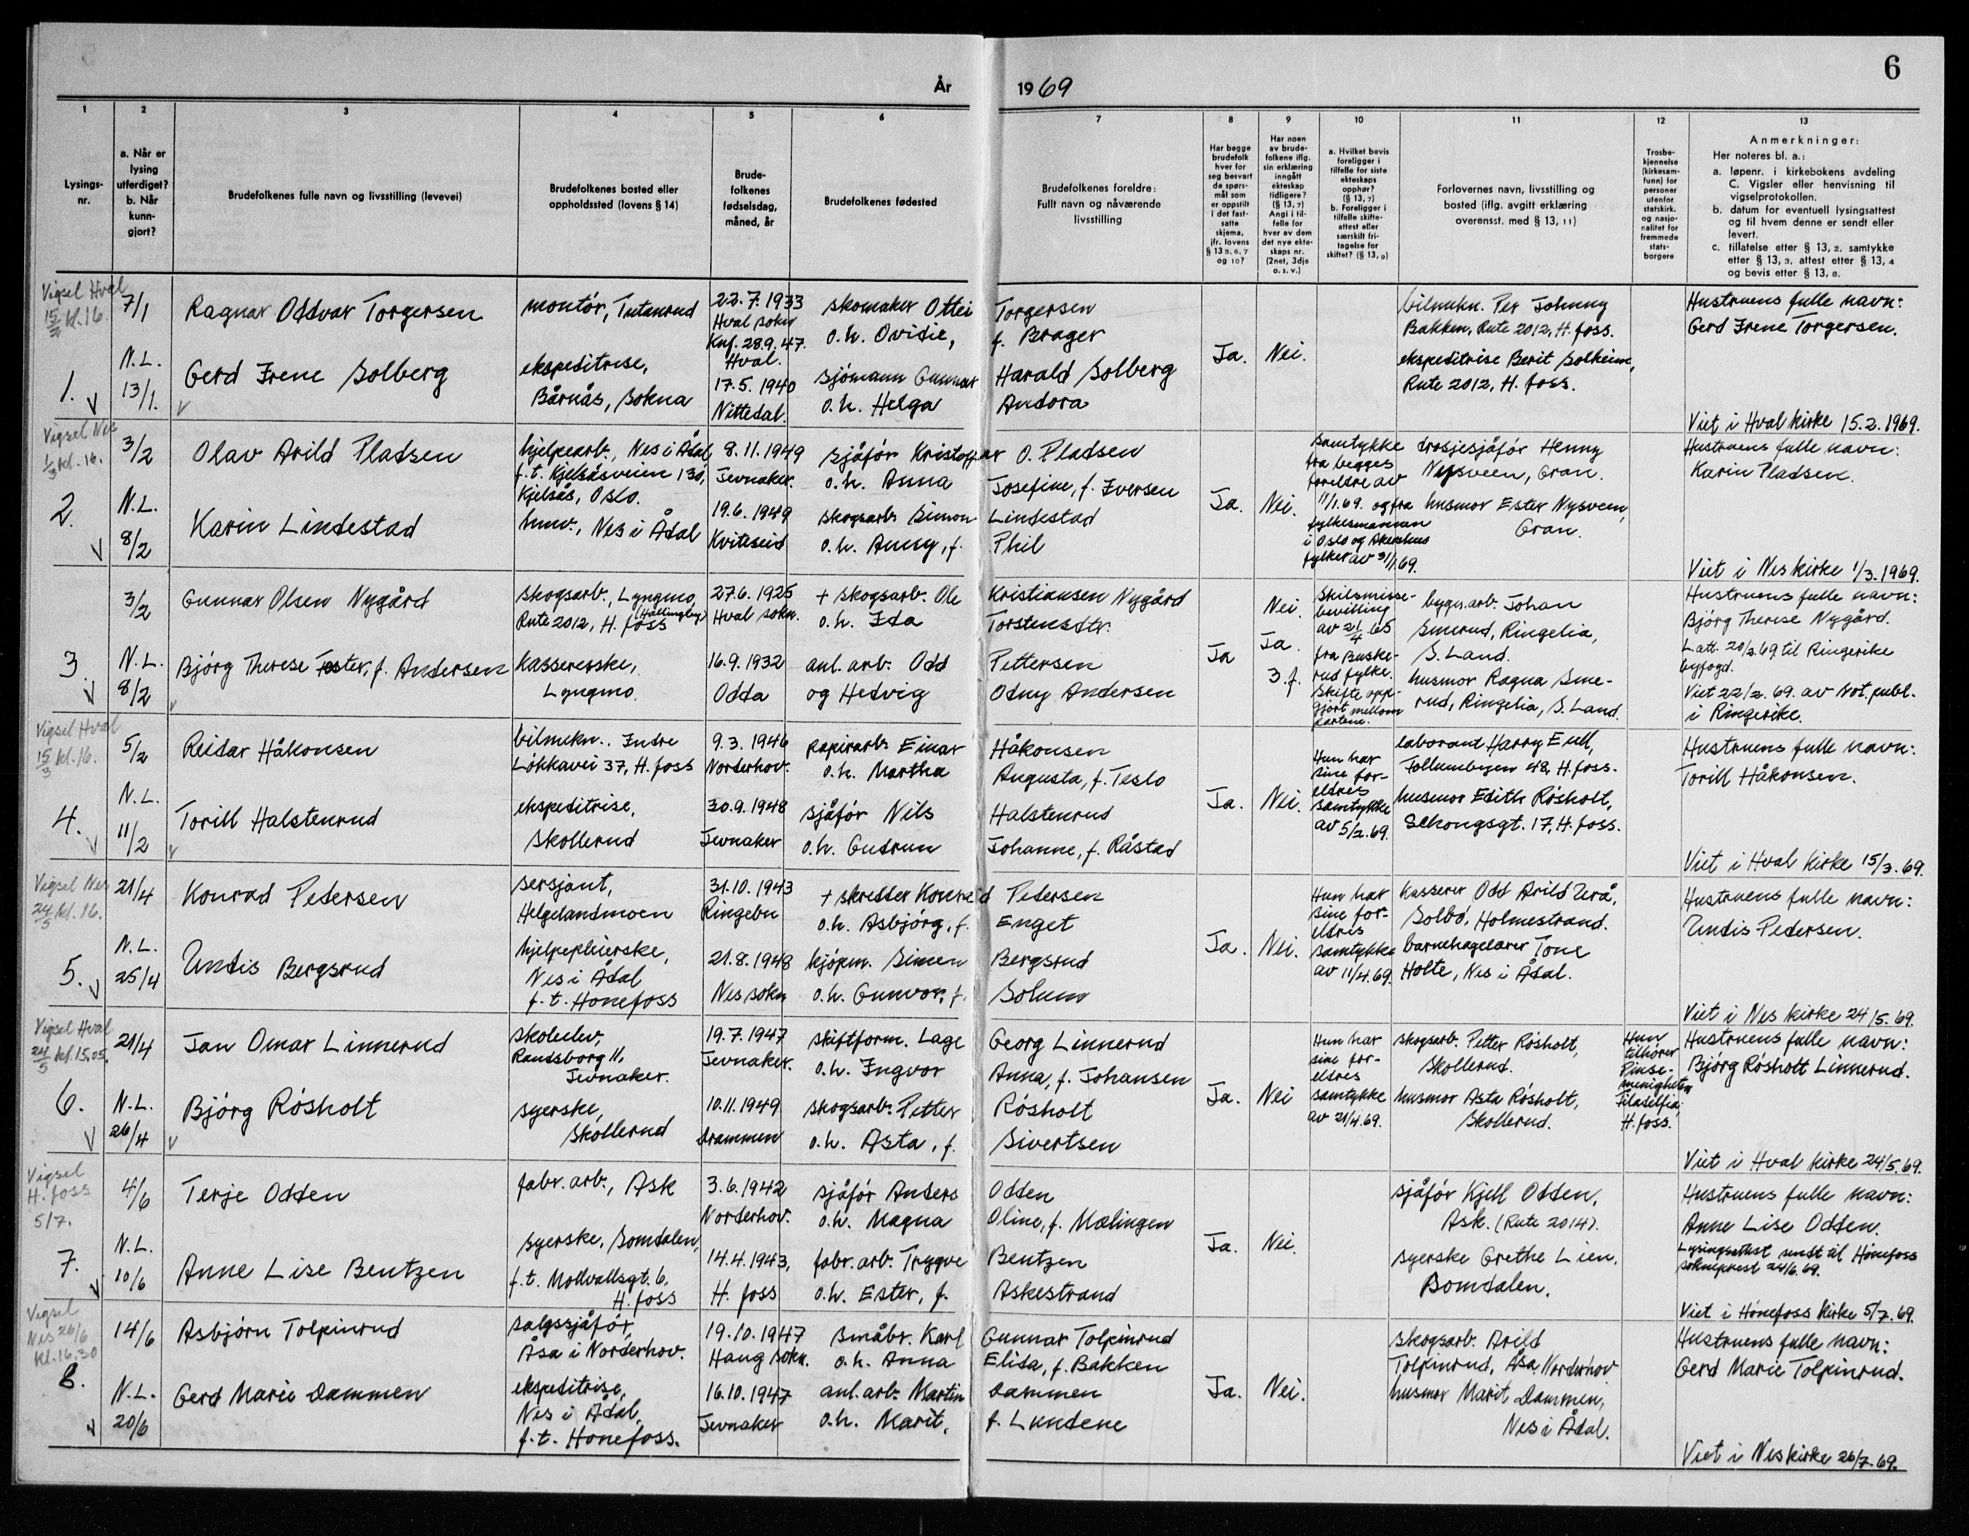 6
År 1969
1 2 3 4 5 6 7 8 9 10 11 12 13
Lysings-
nr.
a. Når er
lysing
utferdiget?
b. Når
kunn-
gjort?
Brudefolkenes fulle navn og livsstilling (levevei)
Brudefolkenes bosted eller
oppholdssted (lovens § 14)
Brude-
folkenes
fødselsdag,
måned, år
Brudefolkenes fødested
Brudefolkenes foreldre:
Fullt navn og nåværende
livsstilling
Har begge
brudefolk
hver for
seg besvart
de spørs-
mål som
er oppstilt
i det fast-
satte
skjema,
jfr. lovens
§ 13 5, 6, 7
og 10?
Har noen
av brude-
folkene iflg.
sin erklæring
inngått
ekteskap
tidligere?
(§ 13, 7)
Angi i til-
felle for
hver av dem
det nye ekte-
skaps nr.
(2net, 3dje
o. s. v.)
a. Hvilket bevis
foreligger i
tilfelle for siste
ekteskaps
opphør?
(§ 13, 7)
b. Foreligger i
tilfelle skifte-
attest eller
særskilt fri-
tagelse for
skiftet? (§ 13, 9)
Forlovernes navn, livsstilling og
bosted (iflg. avgitt erklæring
overensst. med § 13, 11)
Trosbe-
kjennelse
(kirkesam-
funn) for
personer
utenfor
statskirk.
og nasjo-
nalitet for
fremmede
stats-
borgere
Anmerkninger:
Her noteres bl. a.:
a. løpenr. i kirkebokens avdeling
C. Vigsler eller henvisning til
vigselprotokollen.
b. datum for eventuell lysingsattest
og til hvem denne er sendt eller
levert.
c. tillatelse etter § 13, 2. samtykke
etter § 13, 3. attest etter § 13, 4
og bevis etter § 13, 8.
Vigsel Hval
15/2 kl. 16.
1. V
7/1
N.L.
13/1.
Ragnar Oddvar Torgersen
Gerd Irene Solberg
montør, Tutanrud
ekspeditrise,
Bårnås, Sokna
22.7.1933
Hval sokn
Knf. 28.9.47.
Hval.
17.5.1940
Nittedal.
skomaker Ottei Torgersen
o.h. Ovidie, f. Brager
sjømann Gunnar Harald Solberg
o.h. Helga Andora
Ja. Nei.
bilmekn. Per Johnny
Bakken, Rute 2012, H.foss.
ekspeditrise Berit Solheim,
Rute 2012, H.foss.
Hustruens fulle navn:
Gerd Irene Torgersen.
Viet i Hval kirke 15.2.1969.
Vigsel Nes
1/3 kl. 16.
2. V
3/2
N.L.
8/2
Olav Arild Pladsen
Karin Lindestad
hjelpearb., Nes i Ådal
f.t. Kjelsåsveien 130,
Kjelsås, Oslo.
hmv., Nes i Ådal
8.11.1949
Jevnaker.
19.6.1949
Kviteseid
sjåfør Kristoffer O. Pladsen
o.h. Anna Josefine, f. Iversen
skogsarb. Simon Lindestad
o.h. Anny, f. Phil
Ja. Nei.
samtykke
fra begges
foreldre av
11/1.69. og fra
fylkesmannen
i Oslo og Akershus
fylker av 31/1.69.
drosjesjåfør Henny
Nysveen, Gran.
husmor Ester Nysveen,
Gran.
Hustruens fulle navn:
Karin Pladsen.
Viet i Nes kirke 1/3.1969.
3. V
3/2
N.L.
8/2
Gunnar Olsen Nygård
Bjørg Therese Foster, f. Andersen
skogsarb., Lyngmo,
(Hallingby)
Rute 2012, H.foss
kassererske,
Lyngmo.
27.6.1925
Hval sokn.
16.9.1932
Odda
+ skogsarb. Ole Kristiansen Nygård
o.h. Ida Torstensdtr.
anl.arb. Odd Pettersen
og Hedvig Odny Andersen
Ja
Nei
Ja.
3.f.
Skilsmisse-
bevilling
av 21/4 65
fra Buske-
rud fylke.
Skifte opp-
gjort mellom
partene.
bygn.arb. Johan
Smerud, Ringelia,
S. Land.
husmor Ragna Sme-
rud, Ringelia, S. Land.
Hustruens fulle navn:
Bjørg Therese Nygård.
L.att. 20/2.69 til Ringerike
byfogd.
Viet 22/2.69. av Not.publ.
i Ringerike.
Vigsel Hval
15/3 kl. 16.
4. V
5/2
N.L.
11/2
Reidar Håkonsen
Torill Halstenrud
bilmekn. Indre
Løkkavei 37, H.foss
ekspeditrise,
Skollerud
9.3.1946
Norderhov.
30.9.1948
Jevnaker
papirarb. Einar Håkonsen
o.h. Martha Augusta, f. Teslo
sjåfør Nils Halstenrud
o.h. Gudrun Johanne, f. Råstad
Ja. Nei.
Hun har
sine for-
eldres
samtykke
av 5/2.69.
laborant Harry Eull,
Follumbyen 48, H.foss.
husmor Edith Røsholt,
Schongsgt. 17, H.foss.
Hustruens fulle navn:
Torill Håkonsen.
Viet i Hval kirke 15/3.69.
Vigsel Nes
24/5 kl. 16.
5. V
21/4
N.L.
25/4
Konrad Pedersen
Undis Bergsrud
sersjant,
Helgelandmoen
hjelpepleierske,
Nes i Ådal
f.t. Hønefoss
31.10.1943
Ringebu
21.8.1948
Nes sokn
+ skredder Konrad Pedersen
o.h. Asbjørg, f. Enget
kjøpm. Simen Bergsrud
o.h. Gunvor, f. Solum
Ja. Nei.
Hun har
sine for-
eldres
samtykke
av 11/4.69.
kasserer Odd Arild Urå,
Solbø, Holmestrand.
barnehagelærer Tone
Holte, Nes i Ådal.
Hustruens fulle navn:
Undis Pedersen.
Viet i Nes kirke 24/5.69.
Vigsel Hval
24/5 kl. 15,05.
6. V
21/4
N.L.
26/4
Jan Omar Linnerud
Bjørg Røsholt
skoleelev,
Randsborg 11,
Jevnaker.
syerske,
Skollerud
19.7.1947
Jevnaker.
10.11.1949
Drammen
skiftform. Lage Georg Linnerud
o.h. Ingvor Anna, f. Johansen
skogsarb. Petter Røsholt
o.h. Asta, f. Sivertsen
Ja. Nei
Hun har
sine for-
eldres
samtykke
av 21/4.69.
skogsarb. Petter Røsholt,
Skollerud.
husmor Asta Røsholt,
Skollerud.
Hun
tilhører
Pinse-
menigheten
Filadelfia,
H.foss.
Hustruens fulle navn:
Bjørg Røsholt Linnerud.
Viet i Hval kirke 24/5.69.
Vigsel
H.foss
5/7.
7. V
4/6
N.L.
10/6
Terje Odden
Anne Lise Bentzen
fabr.arb., Ask
syerske, Somdalen,
f.t. Mollvallsgt. 6,
H.foss
3.6.1942
Norderhov.
14.4.1943,
H.foss
sjåfør Anders Odden
o.h. Magna Oline, f. Mælingen
fabr.arb. Trygve Bentzen
o.h. Ester, f. Askestrand
Ja. Nei.
sjåfør Kjell Odden,
Ask. (Rute 2014).
syerske Grethe Lien,
Somdalen.
Hustruens fulle navn:
Anne Lise Odden.
Lysingsattest sendt til Hønefoss
sokneprest 24/6.69.
Viet i Hønefoss kirke 5/7.69.
Vigsel
Nes 26/6
kl. 16.30
8. V
14/6
N.L.
20/6
Asbjørn Tolpinrud
Gerd Marie Dammen
salgssjåfør,
Åsa i Norderhov.
ekspeditrise,
Nes i Ådal,
f.t. Hønefoss.
19.10.1947
Haug sokn.
16.10.1947
Jevnaker
småbr. Karl Gunnar Tolpinrud
o.h. Anna Elida, f. Bakken
anl.arb. Martin Dammen
o.h. Marit, f. Lundene
Ja. Nei.
skogsarb. Arild
Tolpinrud, Åsa, Norderhov
husmor Marit Dammen,
Nes i Ådal.
Hustruens fulle navn:
Gerd Marie Tolpinrud.
Viet i Nes kirke 26/7.69.